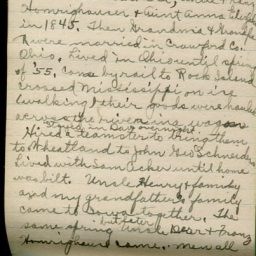 Homrighausen & Aunt Anna
in 1845. Then Grandma & Grandpa
were married in Crawford Co.
Ohio. Lived in Ohio until spring
of '55. Came by rail to Rock Island
crossed Mississippi on ice
(walking) & their goods were hauled
across the river in a wagon
Hired a teamster to bring them
to Wheatland to John Geo Schneiders
Lived with Sam Acker until home
was bilt. Uncle Henry & family
and my grandfather's family
came to Iowa together. The
same spring but later Uncle & Franz
Homrighausen came. Men all